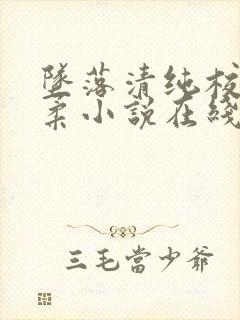 墜落清纯校
柔小說在綫
三毛當少爺